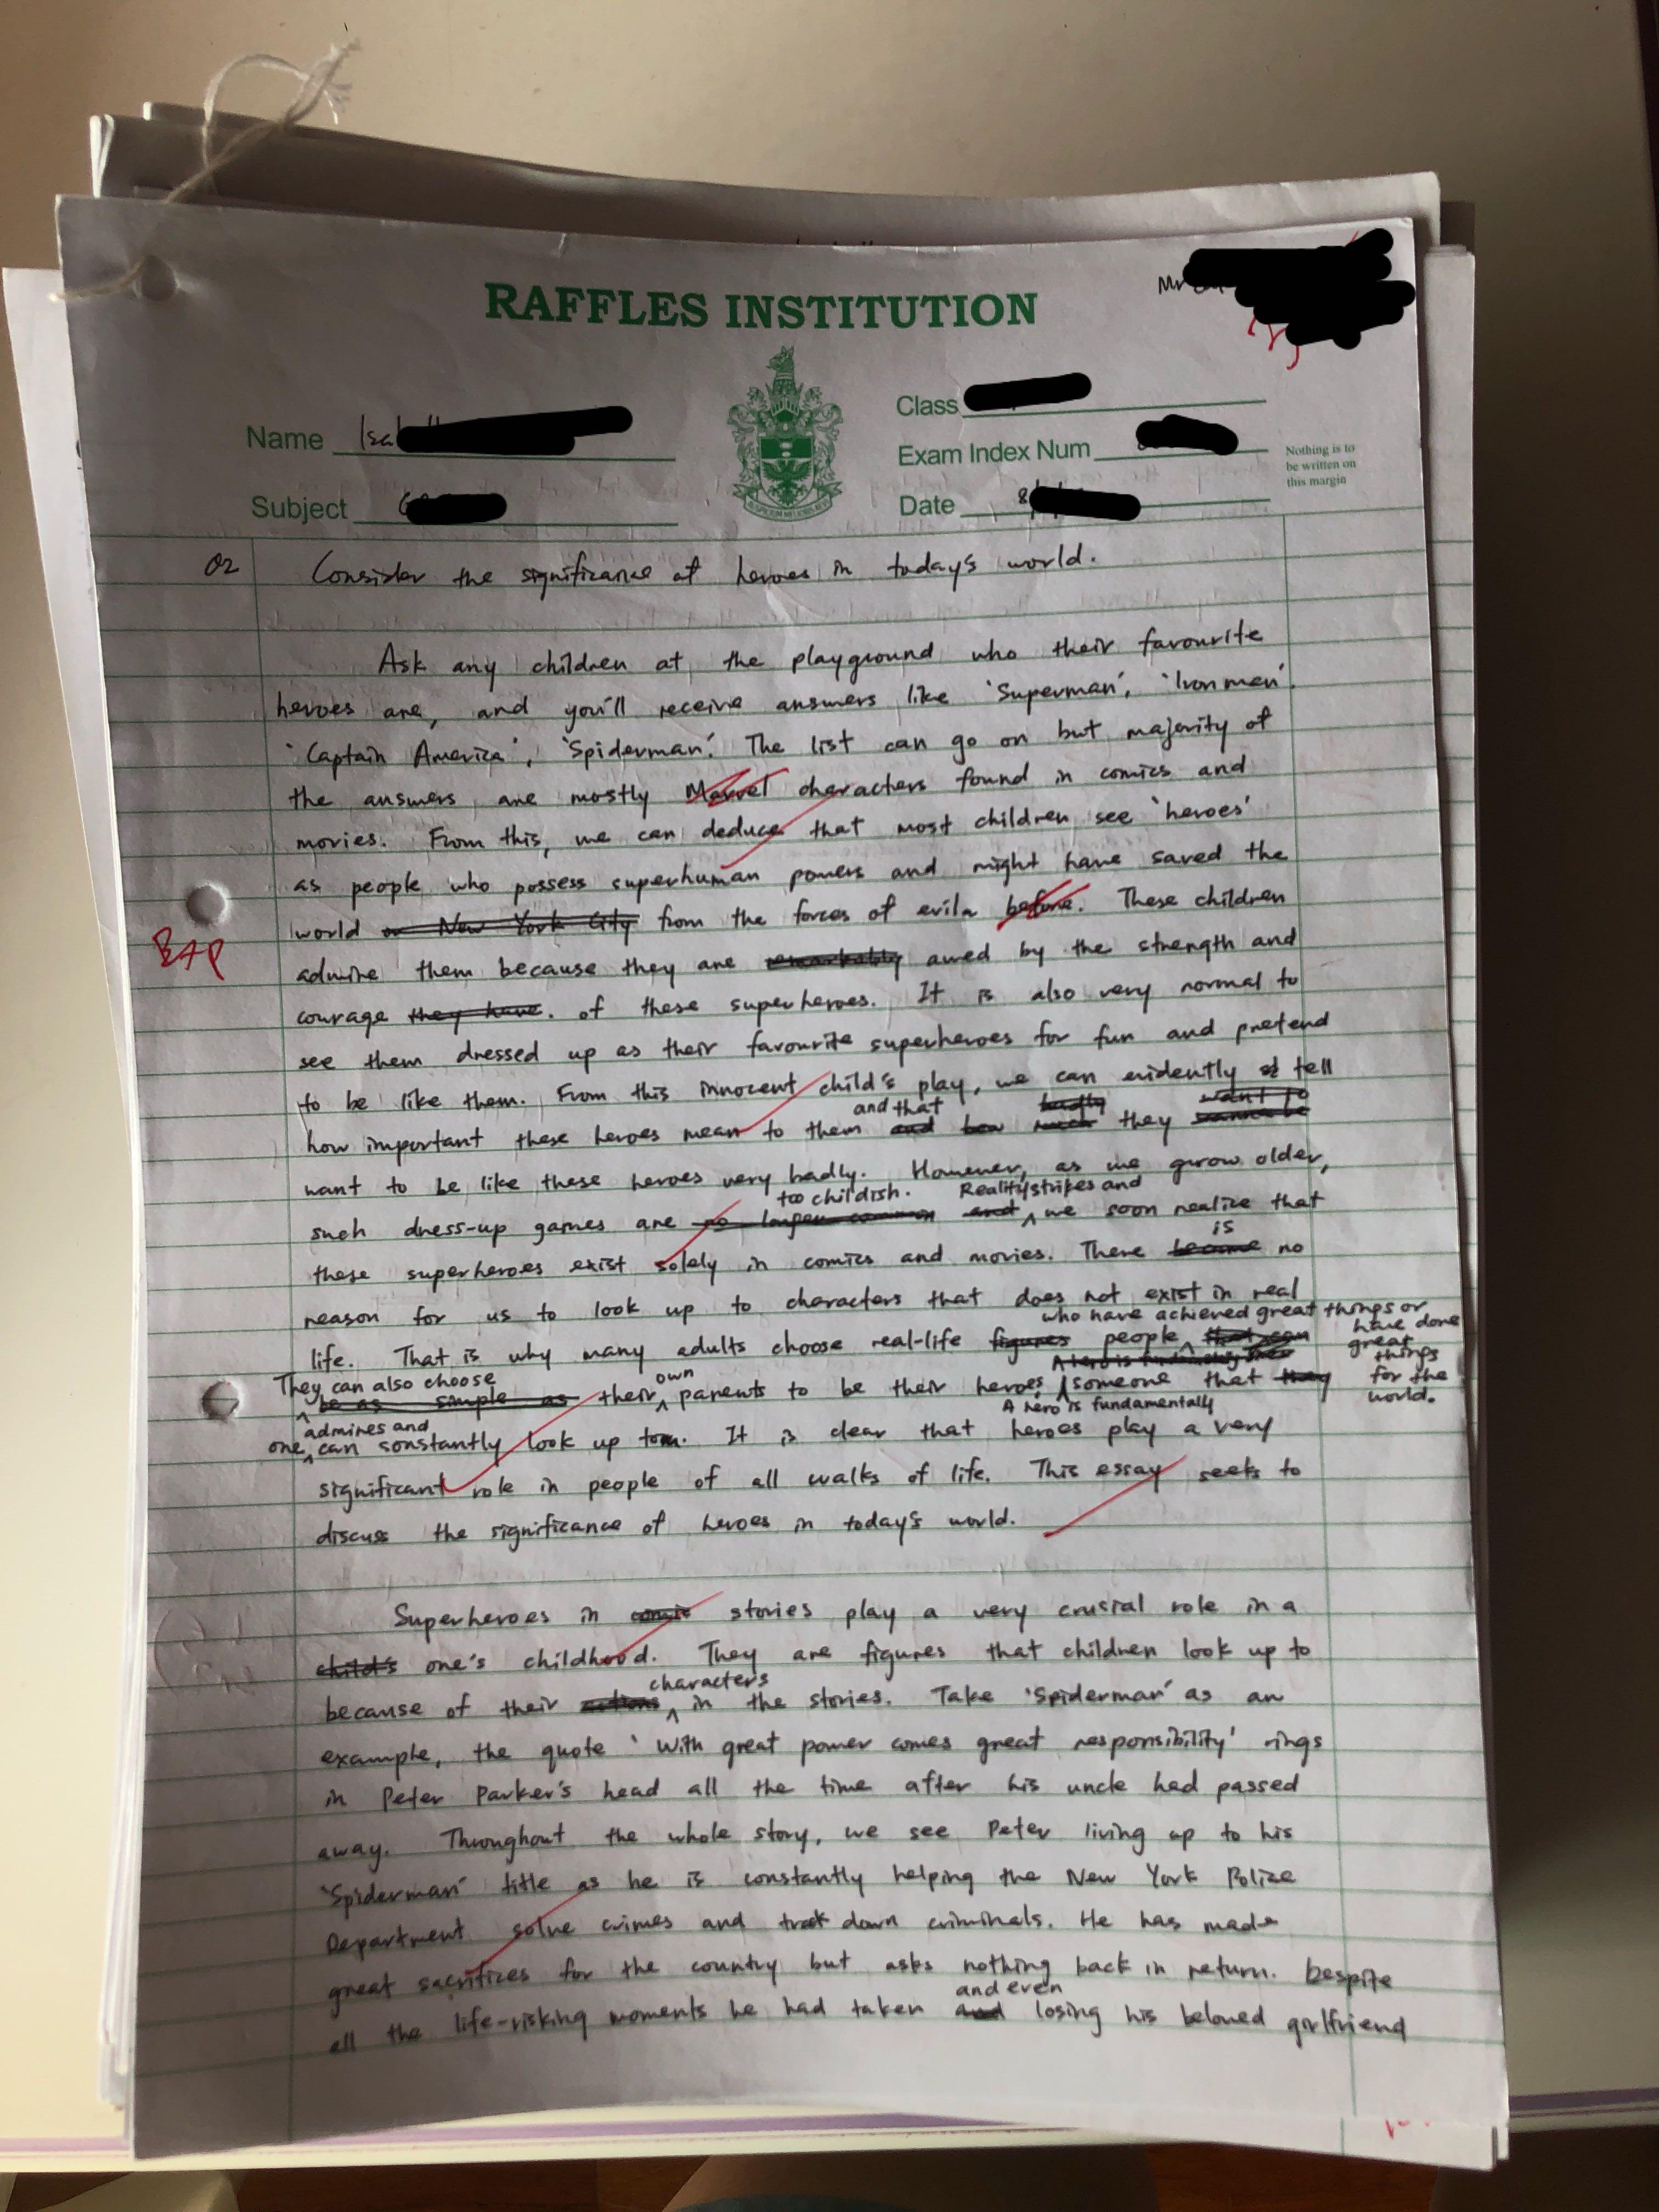 RAFFLES INSTITUTION
Mr
Name Isa
Class
Exam Index Num
Nothing is to
be written on
this margin
Subject
Date 8/
Q2 Consider the significance of heroes in today's world.
Ask any children at the playground who their favourite
heroes are, and you'll receive answers like 'Superman', 'Iron man',
'Captain America', 'Spiderman'. The list can go on but majority of
the answers are mostly Marvel characters found in comics and
movies. From this, we can deduce that most children see 'heroes'
as people who possess superhuman powers and might have saved the
world or New York City from the forces of evil before. These children
BAP
admire them because they are remarkably awed by the strength and
courage they have. of these superheroes. It is also very normal to
see them dressed up as their favourite superheroes for fun and pretend
to be like them. From this innocent child's play, we can evidently tell
and that badly want to
how important these heroes mean to them and how much they wanna be
want to be like these heroes very badly. However, as we grow older,
too childish. Reality strikes and
such dress-up games are no longer common and we soon realize that
is
these superheroes exist solely in comics and movies. There became no
reason for us to look up to characters that does not exist in real
who have achieved great things or have done great things for the world.
life. That is why many adults choose real-life figures people that can
They can also choose own A hero is fundamentally
be as simple as their parents to be their heroes. someone that they
A hero is fundamentally
admires and
one can constantly look up to. It is clear that heroes play a very
significant role in people of all walks of life. This essay seeks to
discuss the significance of heroes in today's world.
Superheroes in comic stories play a very crucial role in a
child's one's childhood. They are figures that children look up to
characters
because of their actions in the stories. Take 'Spiderman' as an
example, the quote 'With great power comes great responsibility' rings
in Peter Parker's head all the time after his uncle had passed
away. Throughout the whole story, we see Peter living up to his
'Spiderman' title as he is constantly helping the New York Police
Department solve crimes and track down criminals. He has made
great sacrifices for the country but asks nothing back in return. Despite
and even
all the life-risking moments he had taken and losing his beloved girlfriend